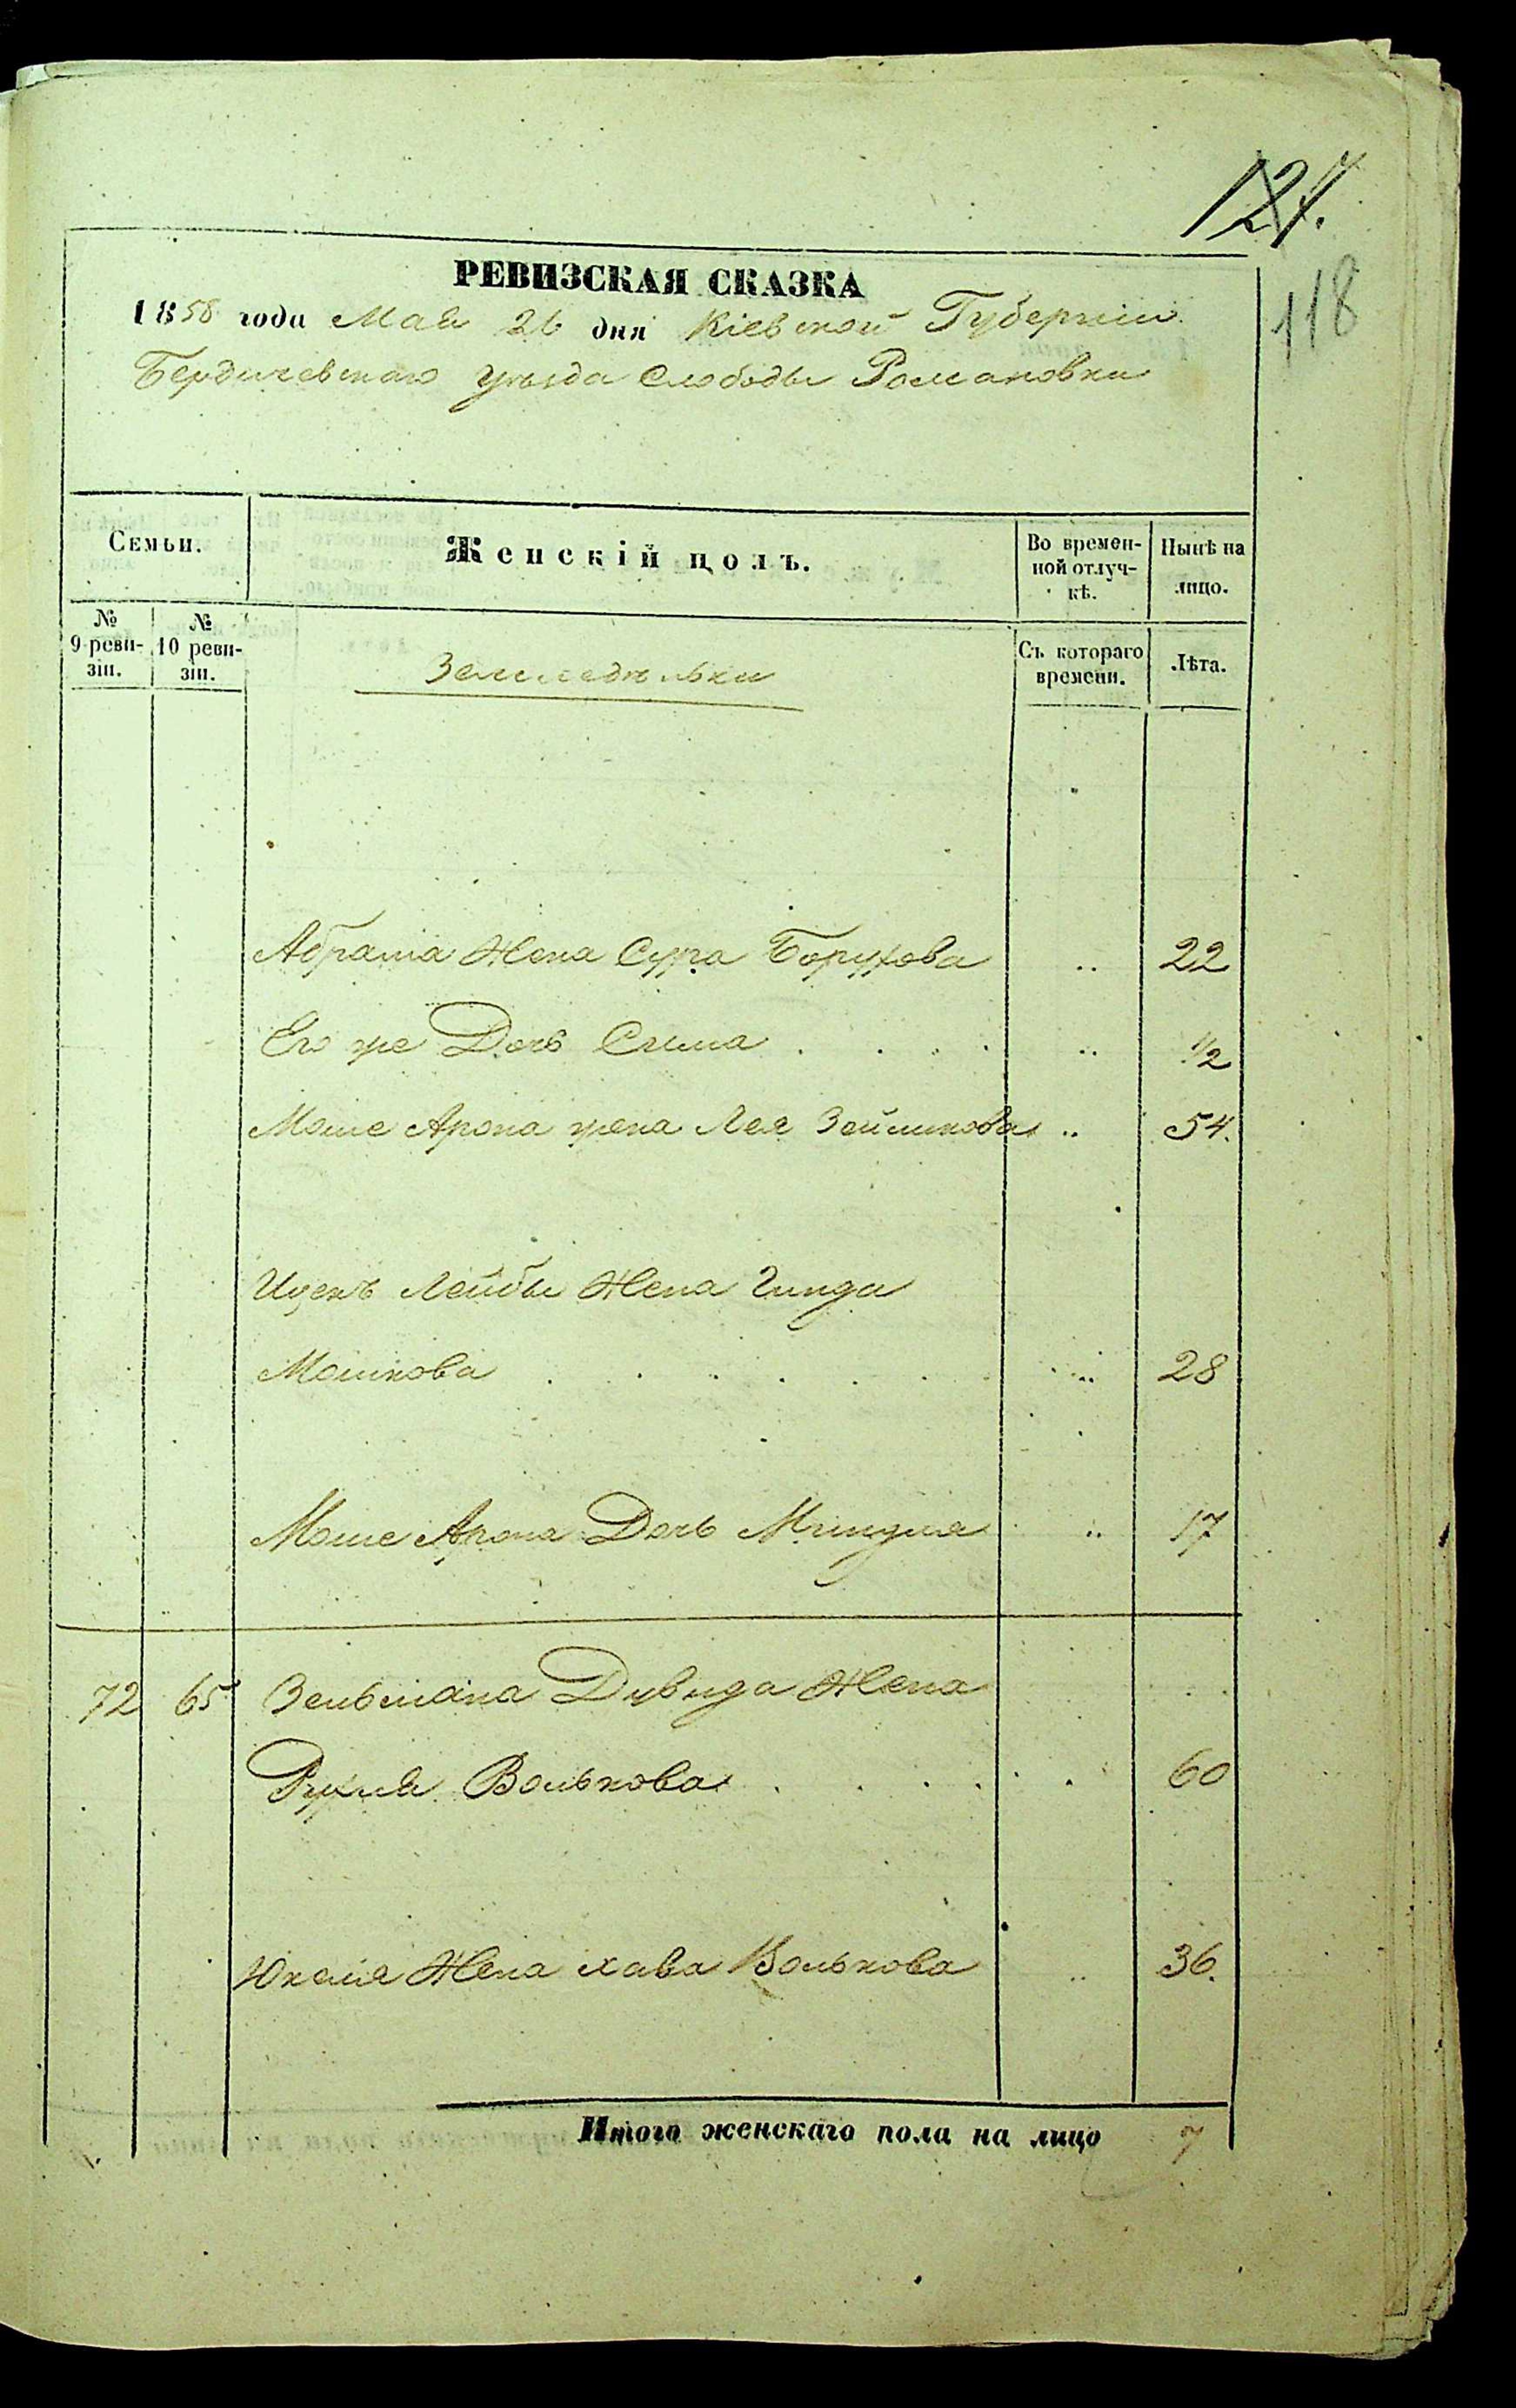 124.
118
РЕВИЗСКАЯ СКАЗКА
1858 года Мая 26 дня Кіевской Губерніи
Бердичевскаго уѣзда Слободы Романовки
Семьи.
Женскій полъ.
Во времен-
ной отлуч-
кѣ.
Нынѣ на
лицо.
№
9 реви-
зіи.
№
10 реви-
зіи.
Земледѣльки
Съ котораго
времени.
Лѣта.
Абрама Жена Сура Борухова .. 22
Его же Дочь Сима . . . . .. 1/2
Моше Арона жена Лея Зейликова .. 54.
Ицекъ Лейбы Жена Гинда
Мошкова . . . . . . .. 28
Моше Арона Дочь Миндля .. 17
72 65 Зельмана Дувида Жена
Рухля Волькова . . . . . 60
Юкеля Жена хава Волькова .. 36.
Итого женскаго пола на лицо 7